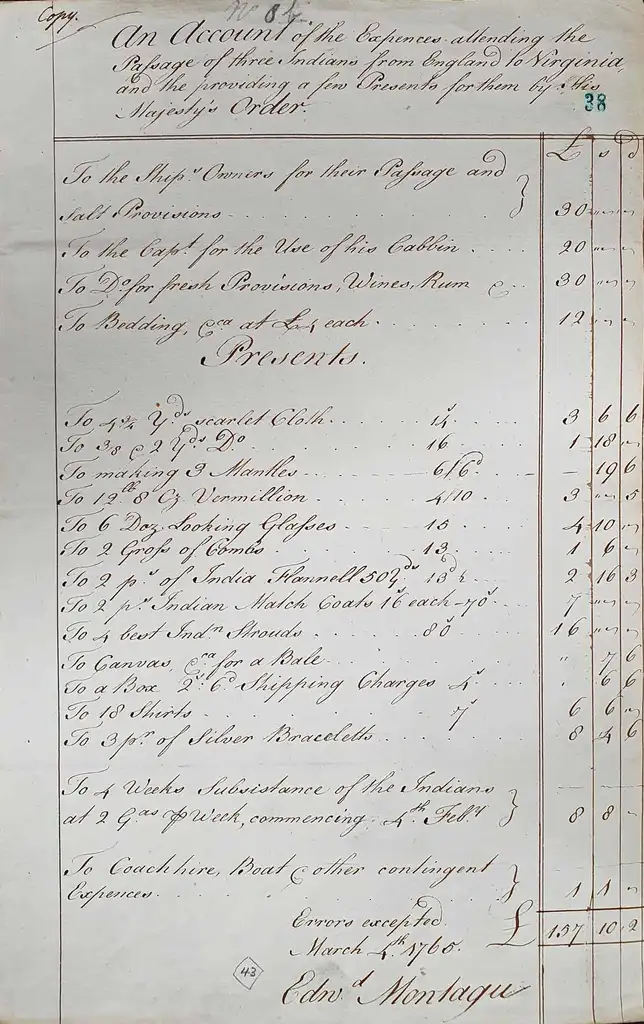 Copy.
No 8 b.
An Account of the Expences attending the
Passage of three Indians from England to Virginia,
and the providing a few Presents for them by His
Majesty's Order.
38
£ s d
To the Ship's Owners for their Passage and
Salt Provisions 30 " "
To the Capt. for the Use of his Cabbin 20 " "
To Do. for fresh Provisions, Wines, Rum &c 30 " "
To Bedding, &ca at £4 each 12 " "
Presents.
To 4 3/4 Yds scarlet Cloth 14s 3 6 6
To 3/8 & 2 Yds Do 16 1 18 "
To making 3 Mantles 6/6d — 19 6
To 12lb 8 Oz. Vermillion 4/10 3 " 5
To 6 Doz. Looking Glasses 15 4 10 "
To 2 Gross of Combs 13 1 6 "
To 2 ps. of India Flannell 50 Yds 13d½ 2 16 3
To 2 ps. Indian Match Coats 16 each 70s 7 " "
To 4 best Indn Strouds 80 16 " "
To Canvas, &ca for a Bale " 7 6
To a Box 2s. 6d Shipping Charges 4s " 6 6
To 18 Shirts 7s 6 6 "
To 3 pr. of Silver Braceletts 8 4 6
To 4 Weeks Subsistance of the Indians
at 2 Gas ⅌ Week, commencing 4th Febry 8 8 "
To Coach hire, Boat & other contingent
Expences 1 1 "
Errors excepted £ 157 10 2
March 4th 1765.
43
Edwd Montagu